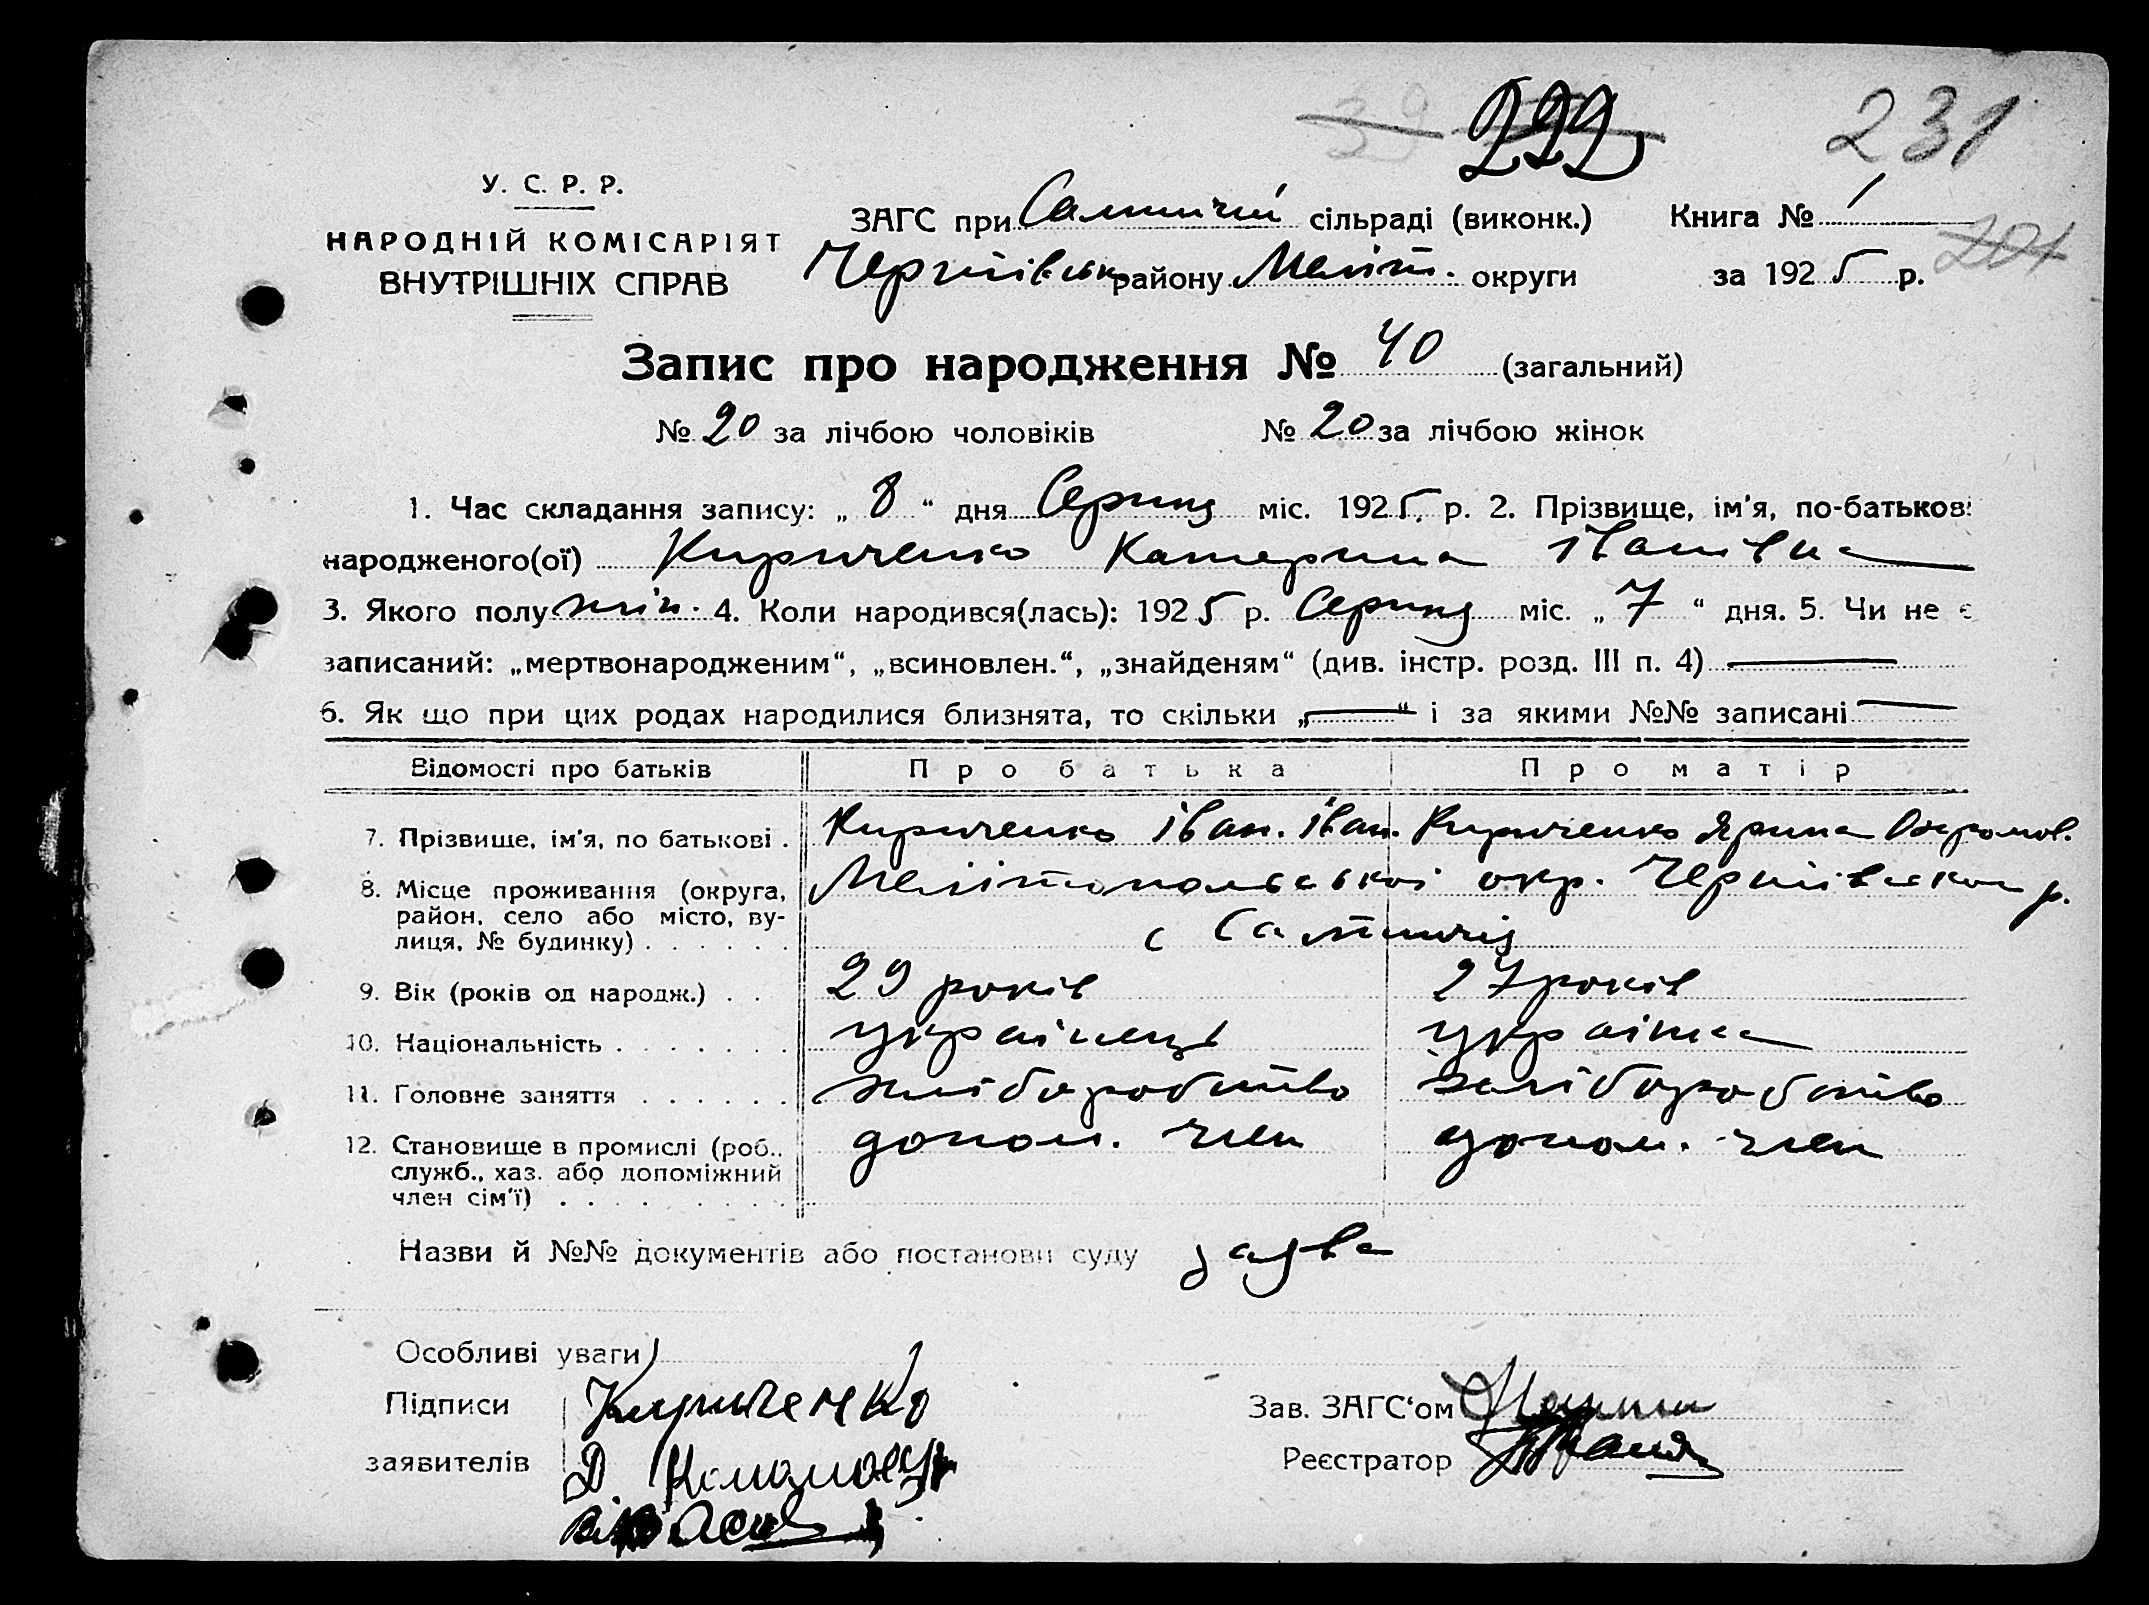 222 231
У. С. Р. Р.
НАРОДНІЙ КОМІСАРІЯТ
ВНУТРІШНІХ СПРАВ
ЗАГС при Салтичій сільраді (виконк.) Книга № 1
Чернігівськ району Меліт. округи за 1925 р.
Запис про народження № 40 (загальний)
№ 20 за лічбою чоловіків № 20 за лічбою жінок
1. Час складання запису: „ 8 “ дня Серпня міс. 1925 р. 2. Прізвище, ім'я, по-батькові
народженого(ої) Кириченко Катерина Іванівна
3. Якого полу жін. 4. Коли народився(лась): 1925 р. Серпня міс. „ 7 “ дня. 5. Чи не є
записаний: „мертвонародженим“, „всиновлен.“, „знайденям“ (див. інстр. розд. III п. 4)
6. Як що при цих родах народилися близнята, то скільки „ “ і за якими №№ записані
Відомості про батьків Про батька Про матір
7. Прізвище, ім'я, по батькові . Кириченко Іван. Іван. Кириченко Ярина Охромов.
8. Місце проживання (округа, Мелітопольської окр. Чернігівської р.
район, село або місто, ву-
лиця, № будинку) . . . . . . с Салтичія
9. Вік (років од народж.) . . 29 років 27 років
10. Національність . . . . . . . українець українка
11. Головне заняття . . . . . . хліборобство хліборобство
12. Становище в промислі (роб., допом. член допом. член
служб., хаз. або допоміжний
член сім'ї) . . . . . . . .
Назви й №№ документів або постанови суду заява
Особливі уваги
Підписи Кириченко Зав. ЗАГС‘ом
заявителів Д Реєстратор